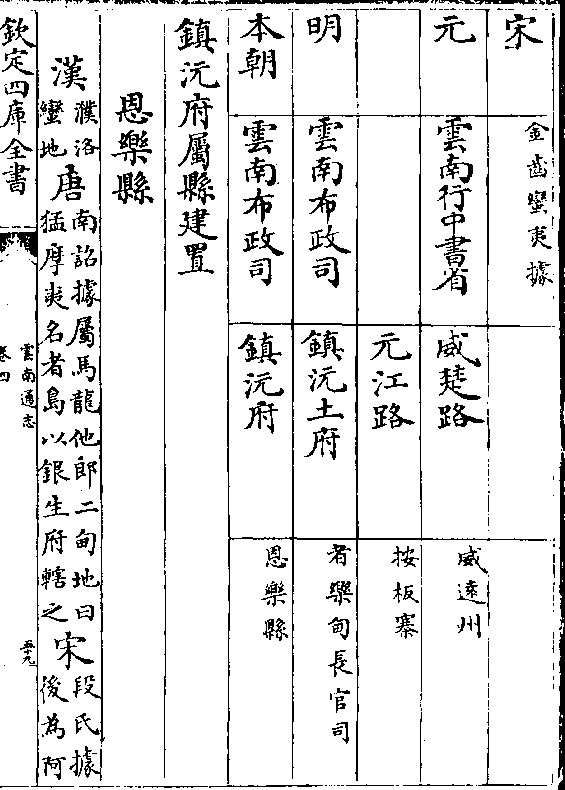 宋 金齒蠻夷據
元 雲南行中書省 威楚路 威遠州
元江路 按板寨
明 雲南布政司 鎮沅土府 者樂甸長官司
本朝 雲南布政司 鎮沅府 恩樂縣
鎮沅府屬縣建置
恩樂縣
漢 濮洛蠻地 唐 南詔據屬馬龍他郎二甸地曰猛摩夷名者島以銀生府轄之 宋 段氏據後為阿
欽定四庫全書
雲南通志
卷四
五十九